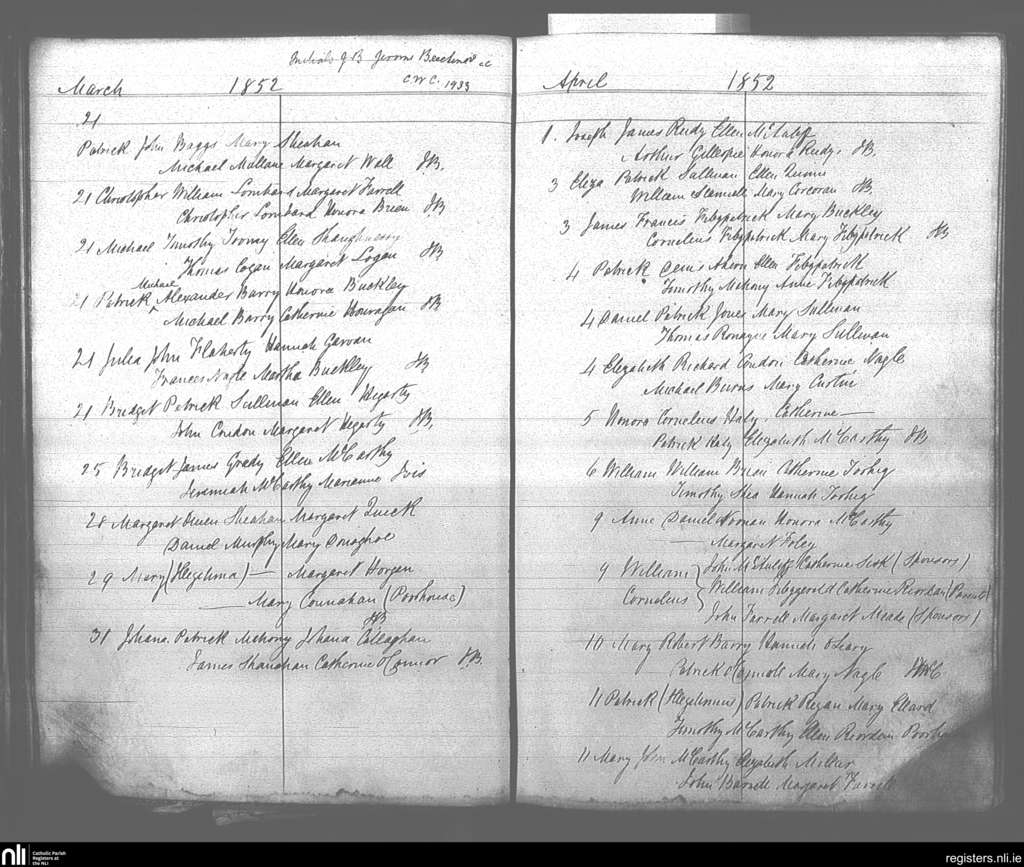 March 1852
C.W.C. 1933
21
Patrick John Baggs Mary Sheahan
Michael Mullane Margaret Wall JB.
21 Christopher William Lombard Margaret Farrell
Christopher Lombard Honora Brien JB
21 Michael Timothy Toomy Ellen Shaughnessy
Thomas Cogan Margaret Logan JB
Michael
21 Patrick ^ Alexander Barry Honora Buckley
Michael Barry Catherine JB
21 Julia John Flaherty Hannah Garvan
Frances Nagle Martha Buckley JB
21 Bridget Patrick Sullivan Ellen Hegarty
John Condon Margaret Hegarty JB.
25 Bridget James Grady Ellen McCarthy
Jeremiah McCarthy Marianne
28 Margaret Owen Sheahan Margaret Quick
Daniel Murphy Mary Donoghoe
29 Mary (Illegitima) — Margaret Horgan
— Mary Counahan (Poorhouse)
JB
31 Johana Patrick Mahony Johana Callaghan
James Shanahan Catherine O'Connor JB.
April 1852
1. Joseph James Reidy Ellen McAuliff
Arthur Gillespie Honora Reidy JB.
3 Eliza Patrick Sullivan Ellen Quinn
William Mary Corcoran JB.
3 James Francis Fitzpatrick Mary Buckley
Cornelius Fitzpatrick Mary Fitzpatrick JB
4 Patrick Denis Ahern Ellen Fitzpatrick
Timothy Mahony Anne Fitzpatrick
4 Daniel Patrick Jones Mary Sullivan
Thomas Mary Sullivan
4 Elizabeth Richard Condon Catherine Nagle
Michael Burns Mary Curtin
5 Honora Cornelius Haly Catherine —
Patrick Haly Elizabeth McCarthy JB
6 William William Brien Catherine Torhig
Timothy Shea Hannah Torhig
9 Anne Daniel Noonan Honora McCarthy
— Margaret Foley
John McAuliff Catherine Sisk (Sponsors)
9 William William Fitzgerald Catherine Riordan (Parents)
Cornelius John Farrell Margaret Meade (Sponsors)
10 Mary Robert Barry Hannah O'Leary
Patrick O'Connell Mary Nagle
11 Patrick (Illegitimus) Patrick Regan Mary Ellard
Timothy McCarthy Ellen Riordan
11 Mary John McCarthy Elizabeth Miller
John Barrett Margaret Farrell
nli Catholic Parish
Registers at
the NLI
registers.nli.ie